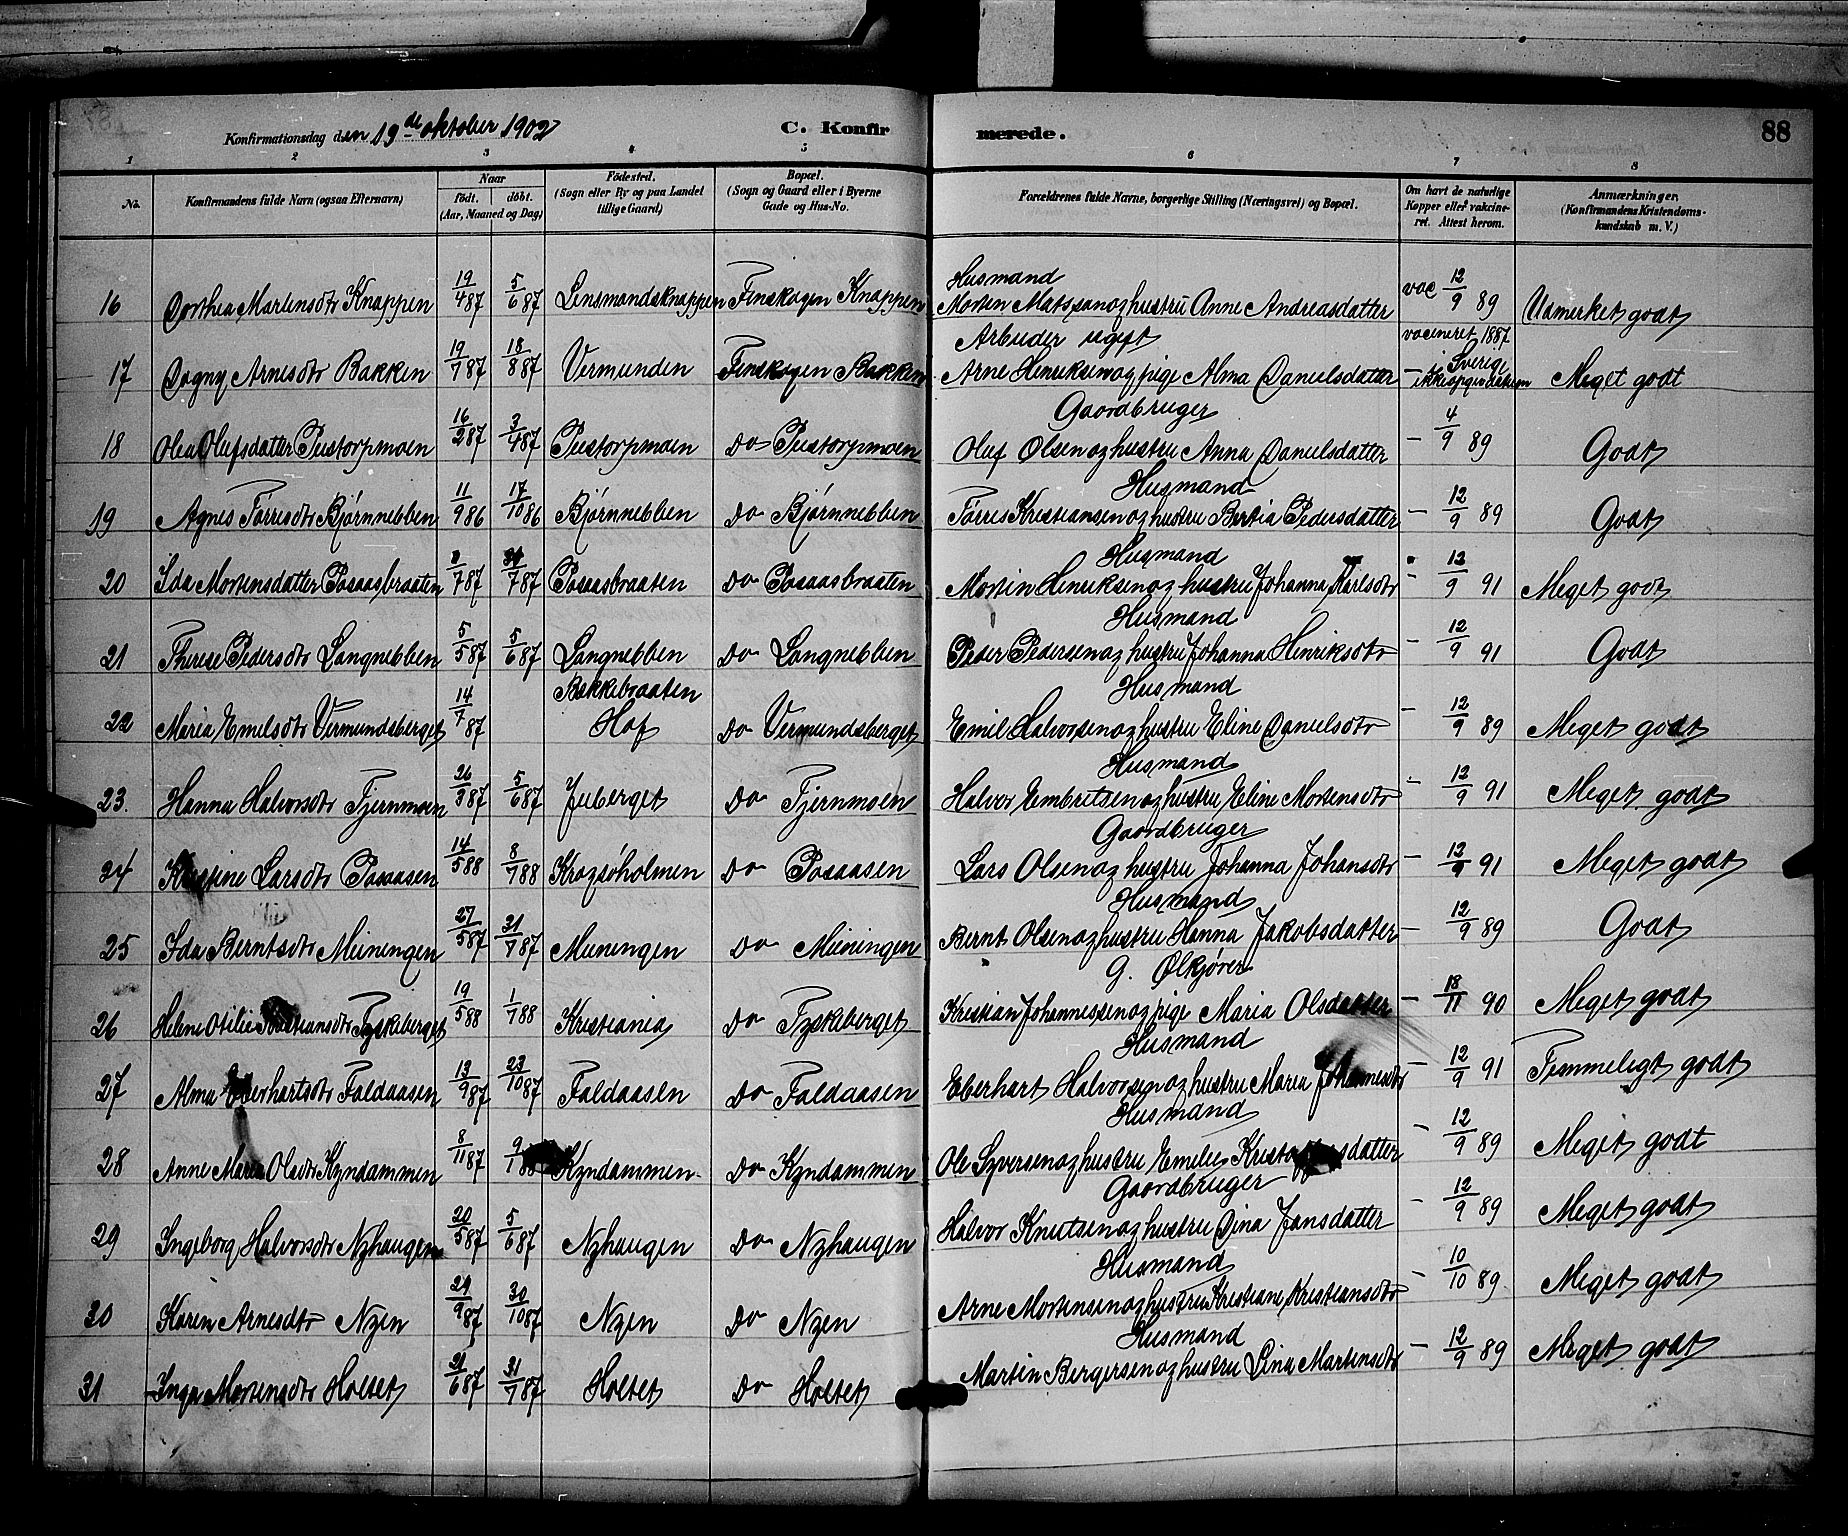 Konfirmationsdag den 19de oktober 1902
C. Konfirmerede.
88
1 2 3 4 5 6 7 8
No.
Konfirmandens fulde Navn (ogsaa Efternavn)
Naar født. døbt. (Aar, Maaned og Dag)
Fødested. (Sogn eller By og paa Landet tillige Gaard)
Bopæl. (Sogn og Gaard eller i Byerne Gade og Hus-No.
Forældrenes fulde Navne, borgerlige Stilling (Næringsvei) og Bopæl.
Om havt de naturlige Kopper eller vakcineret. Attest herom.
Anmærkninger. (Konfirmandens Kristendomskundskab m. V.)
Husmand
16 Dorthea Martensdtr Knappen 19/4 87 5/6 87 Lensmandsknappen Finskogen Knappen Morten Matssen og hustru Anne Andreasdatter vac 12/9 89 Udmerket godt
Arbeider ugift
17 Dagny Arnesdtr Bakken 19/7 87 18/8 87 Vermunden Finskogen Bakken Arne Henriksen og pige Alma Danielsdatter vacineret 1887 i Sverige Meget godt
Gaardbruger
18 Olea Olufsdatter Pustorpmoen 16/2 87 3/4 87 Pustorpmoen Do Pustorpmoen Oluf Olsen og hustru Anna Danielsdatter - 4/9 89 Godt
Husmand
19 Agnes Tørresdtr Bjørnnebben 11/9 86 17/10 86 Bjørnnebben Do Bjørnnebben Tørres Kristiansen og hustru Bertia Pedersdatter - 12/9 89 Godt
Husmand
20 Ida Mortensdatter Posaasbraaten /7 87 /7 87 Posaasbraaten Do Posaasbraaten Mortin Henriksen og hustru Johanna Karlsdtr - 12/9 91 Meget godt
Husmand
21 Therese Pedersdtr Langnebben 5/5 87 5/6 87 Langnebben Do Langnebben Peder Pedersen og hustru Johanna Hinriksdtr - 12/9 91 Godt
Husmand
22 Maria Emelsdtr Vermundsberget 14/7 87 Bakkebraaten Hof Do Vermundsberget Emil Halvorsen og hustru Eline Danielsdtr - 12/9 89 Meget godt
Husmand
23. Hanna Halvorsdtr Tjernmoen 26/3 87 5/6 87 Juberget Do Tjernmoen Halvor Embretsen og hustru Eline Mortensdtr - 12/9 91 Meget godt
Gaardbruger
24 Kristine Larsdtr Posaasen 14/5 88 8/7 88 Krogsøholmen Do Posaasen Lars Olsen og hustru Johanna Johansdtr - 12/9 91 Meget godt
Husmand
25 Ida Berntsdtr Meiningen 27/5 87 31/7 87 Meiningen Do Meiningen Bernt Olsen og hustru Hanna Jakobsdatter - 12/9 89 Godt
G. Ølkjører
26 Helene Otilie Kristiansdtr Tyskeberget 19/5 88 1/7 88 Kristiania Do Tyskeberget Kristian Johannessen og pige Maria Olsdatter - 18/11 90 Meget godt
Husmand
27 Alma Eberhartsdtr Faldaasen 13/9 87 23/10 87 Faldaasen Do Faldaasen Eberhart Halvorsen og hustru Maria Johannesdtr - 12/9 91 Temmeligt godt
Husmand
28 Anne Maria Olsdtr Kyndammen 8/11 87 9/1 88 Kyndammen Do Kyndammen Ole Syversen og hustru Emelie Kristoffersdatter - 12/9 89 Meget godt
Gaardbruger
29 Ingeborg Halvorsdtr Nyhaugen 20/5 87 5/6 87 Nyhaugen Do Nyhaugen Halvor Knutsen og hustru Dina Jansdatter - 12/9 89 Meget godt
Husmand
30 Karen Arnesdtr Nyen 24/9 87 30/10 87 Nyen Do Nyen Arne Mortensen og hustru Kristiane Kristiansdtr - 10/10 89 Meget godt
Husmand
31 Inga Mortensdtr Holtet 21/6 87 31/7 87 Holtet Do Holtet Martin Bergersen og hustru Lina Martensdtr - 12/9 89 Meget godt